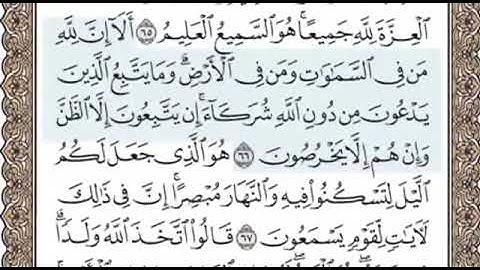 ٱلْعِزَّةَ لِلَّهِ جَمِيعًا ۚ هُوَ ٱلسَّمِيعُ ٱلْعَلِيمُ ٦٥ أَلَآ إِنَّ لِلَّهِ
مَن فِى ٱلسَّمَٰوَٰتِ وَمَن فِى ٱلْأَرْضِ ۗ وَمَا يَتَّبِعُ ٱلَّذِينَ
يَدْعُونَ مِن دُونِ ٱللَّهِ شُرَكَآءَ ۚ إِن يَتَّبِعُونَ إِلَّا ٱلظَّنَّ
وَإِنْ هُمْ إِلَّا يَخْرُصُونَ ٦٦ هُوَ ٱلَّذِى جَعَلَ لَكُمُ
ٱلَّيْلَ لِتَسْكُنُوا۟ فِيهِ وَٱلنَّهَارَ مُبْصِرًا ۚ إِنَّ فِى ذَٰلِكَ
لَءَايَٰتٍ لِّقَوْمٍ يَسْمَعُونَ ٦٧ قَالُوا۟ ٱتَّخَذَ ٱللَّهُ وَلَدًا ۗ